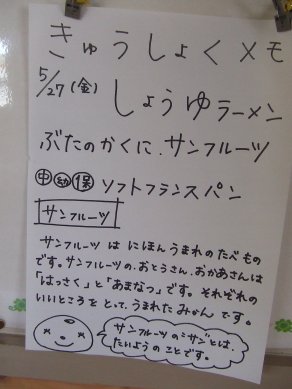 きゅうしょくメモ
5/27(金) しょうゆラーメン
ぶたのかくに、サンフルーツ
中 幼 保 ソフトフランスパン
サンフルーツ
サンフルーツ は にほんうまれの たべもの
です。サンフルーツの、おとうさん、おかあさんは
「はっさく」と「あまなつ」です。それぞれの
いいところを とって、うまれた みかん です。
サンフルーツの"サン"とは、
たいようの ことです。